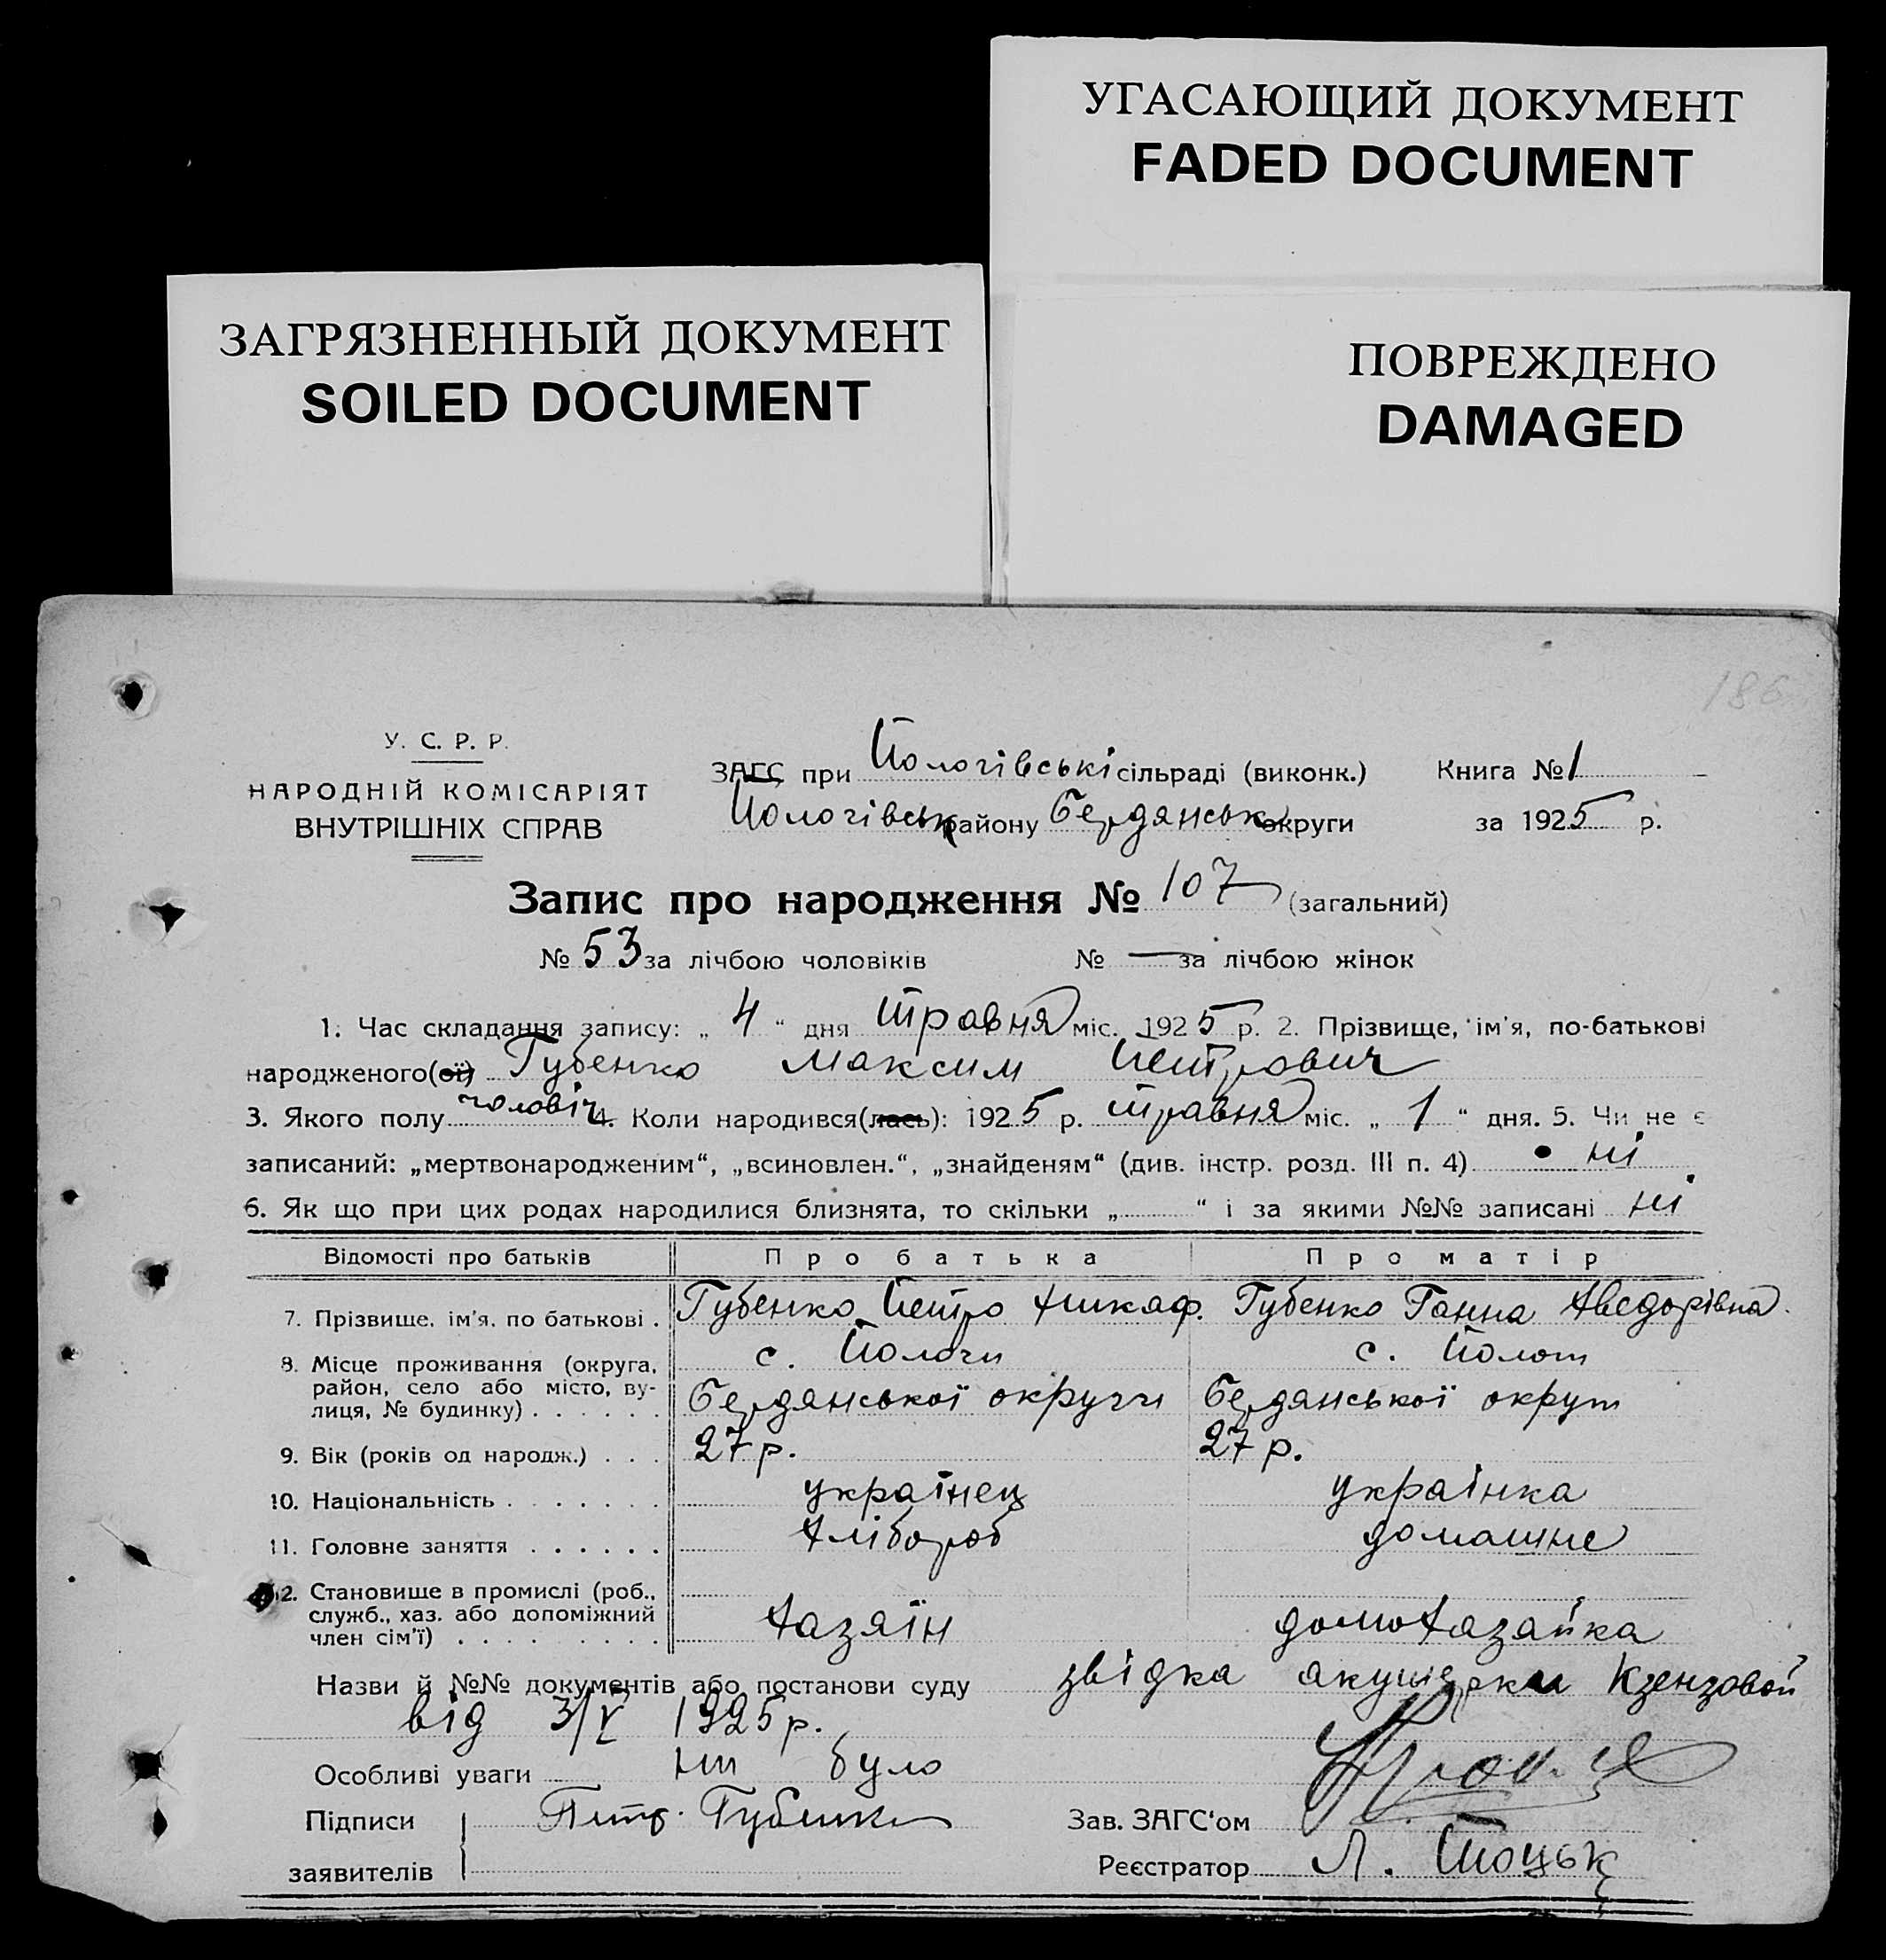 УГАСАЮЩИЙ ДОКУМЕНТ
FADED DOCUMENT
ЗАГРЯЗНЕННЫЙ ДОКУМЕНТ
SOILED DOCUMENT
ПОВРЕЖДЕНО
DAMAGED
186
У. С. Р. Р.
НАРОДНІЙ КОМІСАРІЯТ
ВНУТРІШНІХ СПРАВ
ЗАГС при Пологівські сільраді (виконк.) Книга № 1
Пологівськ району Бердянськ округи за 1925 р.
Запис про народження № 107 (загальний)
№ 53 за лічбою чоловіків № — за лічбою жінок
1. Час складання запису: „ 4 “ дня травня міс. 1925 р. 2. Прізвище, ім'я, по-батькові
народженого(ої) Губенко Максим Петрович
3. Якого полу чоловіч 4. Коли народився(лась): 1925 р. травня міс. „ 1 “ дня. 5. Чи не є
записаний: „мертвонародженим“, „всиновлен.“, „знайденям“ (див. інстр. розд. III п. 4) ні
6. Як що при цих родах народилися близнята, то скільки „ “ і за якими №№ записані ні
Відомості про батьків Про батька Про матір
7. Прізвище, ім'я, по батькові . Губенко Петро Никаф. Губенко Ганна Аведорівна.
8. Місце проживання (округа, с. Пологи с. Пологи
район, село або місто, ву-
лиця, № будинку) . . . . . . Бердянської округи Бердянської округи
9. Вік (років од народж.) . . . 27 р. 27 р.
10. Національність . . . . . . . українець українка
11. Головне заняття . . . . . . хлібороб домашнє
12. Становище в промислі (роб.,
служб., хаз. або допоміжний
член сім'ї) . . . . . . . . . хазяїн домохазяйка
Назви й №№ документів або постанови суду звідка акушерки Кзензовой
від 3/V 1925 р.
Особливі уваги ни було
Підписи Петр. Губенко Зав. ЗАГС‘ом
заявителів Реєстратор Л. Тоцьк